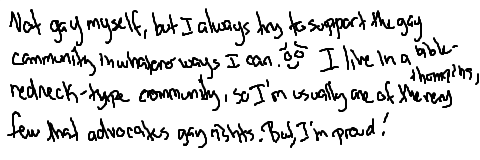 Not gay myself, but I always try to support the gay
community in whatever ways I can. I live in a bible-
thumping,
redneck-type community, so I'm usually one of the very
few that advocates gay rights. But, I'm proud!